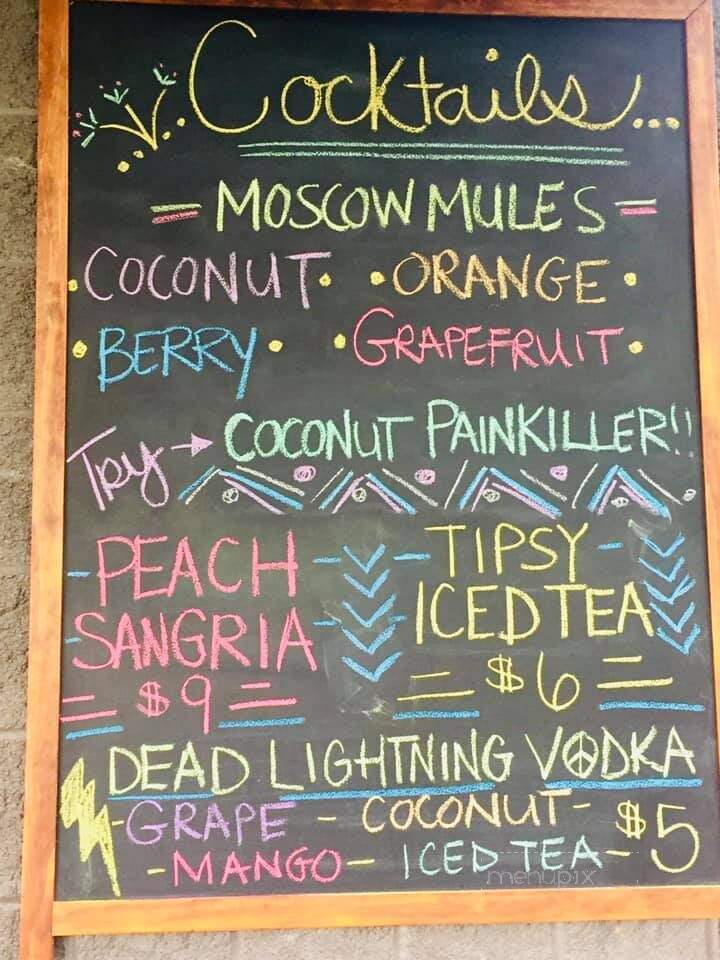 Cocktails...
- MOSCOW MULES -
• COCONUT • • ORANGE •
• BERRY • • GRAPEFRUIT •
Try → COCONUT PAINKILLER!!
- PEACH - - TIPSY -
- SANGRIA - ICED TEA
= $9 = = $6 =
DEAD LIGHTNING VODKA
- GRAPE - COCONUT - $5
- MANGO - ICED TEA -
menupix